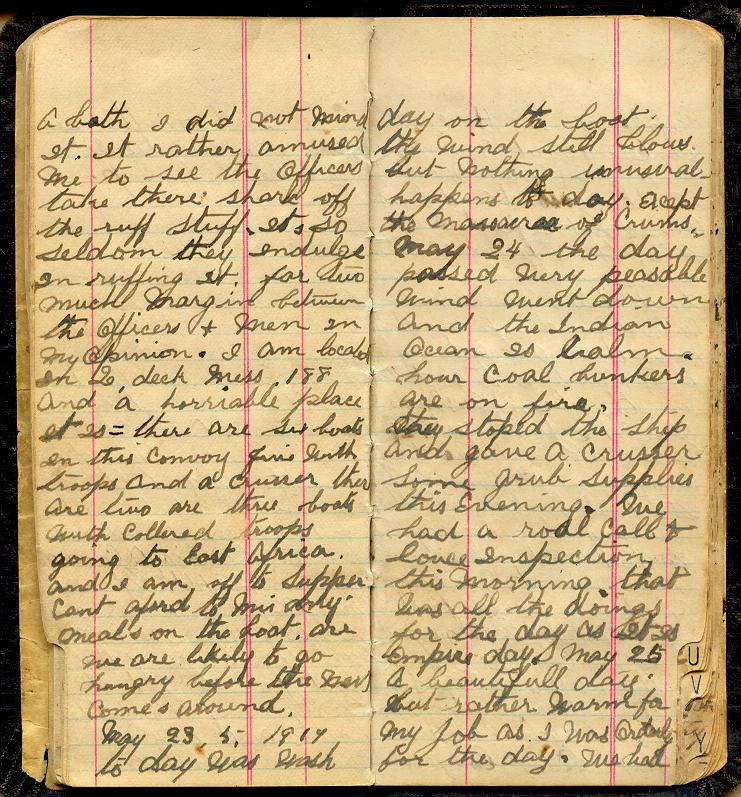 a bath I did not mind
it. it rather amused
me to see the Officers
take there share off
the ruff stuff. its so
seldom they indulge
in ruffing it. far two
much margin between
the Officers & Men in
my Opinion. I am located
in D deck Mess 188
and a horriable place
it is = there are six boats
in this convoy five with
troops and a cruser ther
are two are three boats
with collered troops
going to East Africa.
and I am off to Supper
Cant aford to mis any
meals on the boat. are
we are likely to go
hungry before the next
Comes around.
May 23. 5. 1917
to day was wash
day on the boat.
the wind still blows.
but nothing unusual
happens to day. Except
the Massacree of Crums.
May 24 the day
passed very peasable
wind went down
and the Indian
Ocean is Calm.
hour Coal bunkers
are on fire.
they stoped the ship
and gave a cruser
some grub supplies
this Evening. We
had a roal Call &
Inspection
this Morning. that
was all the doings
for the day as it is
Empire day. May 25
A beautifull day.
but rather warm for
My Job as I was Orderly
for the day. we had
U
V